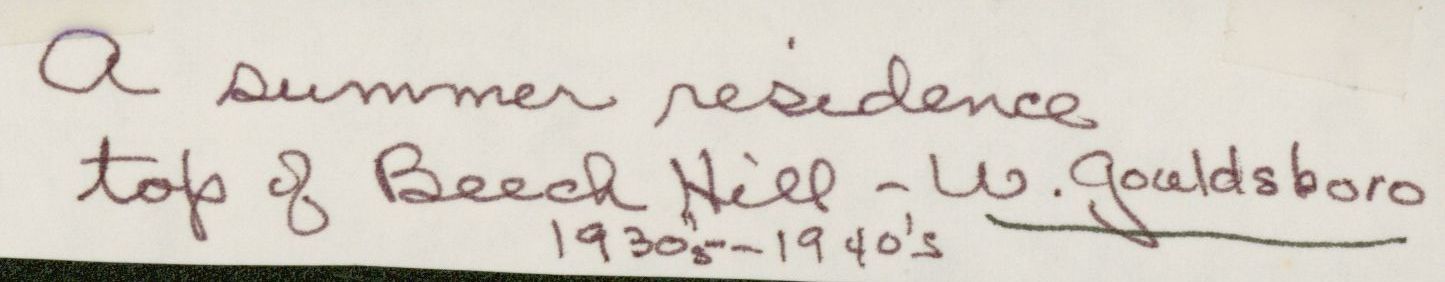 A summer residence
top of Beech Hill - W. Gouldsboro
1930's - 1940's